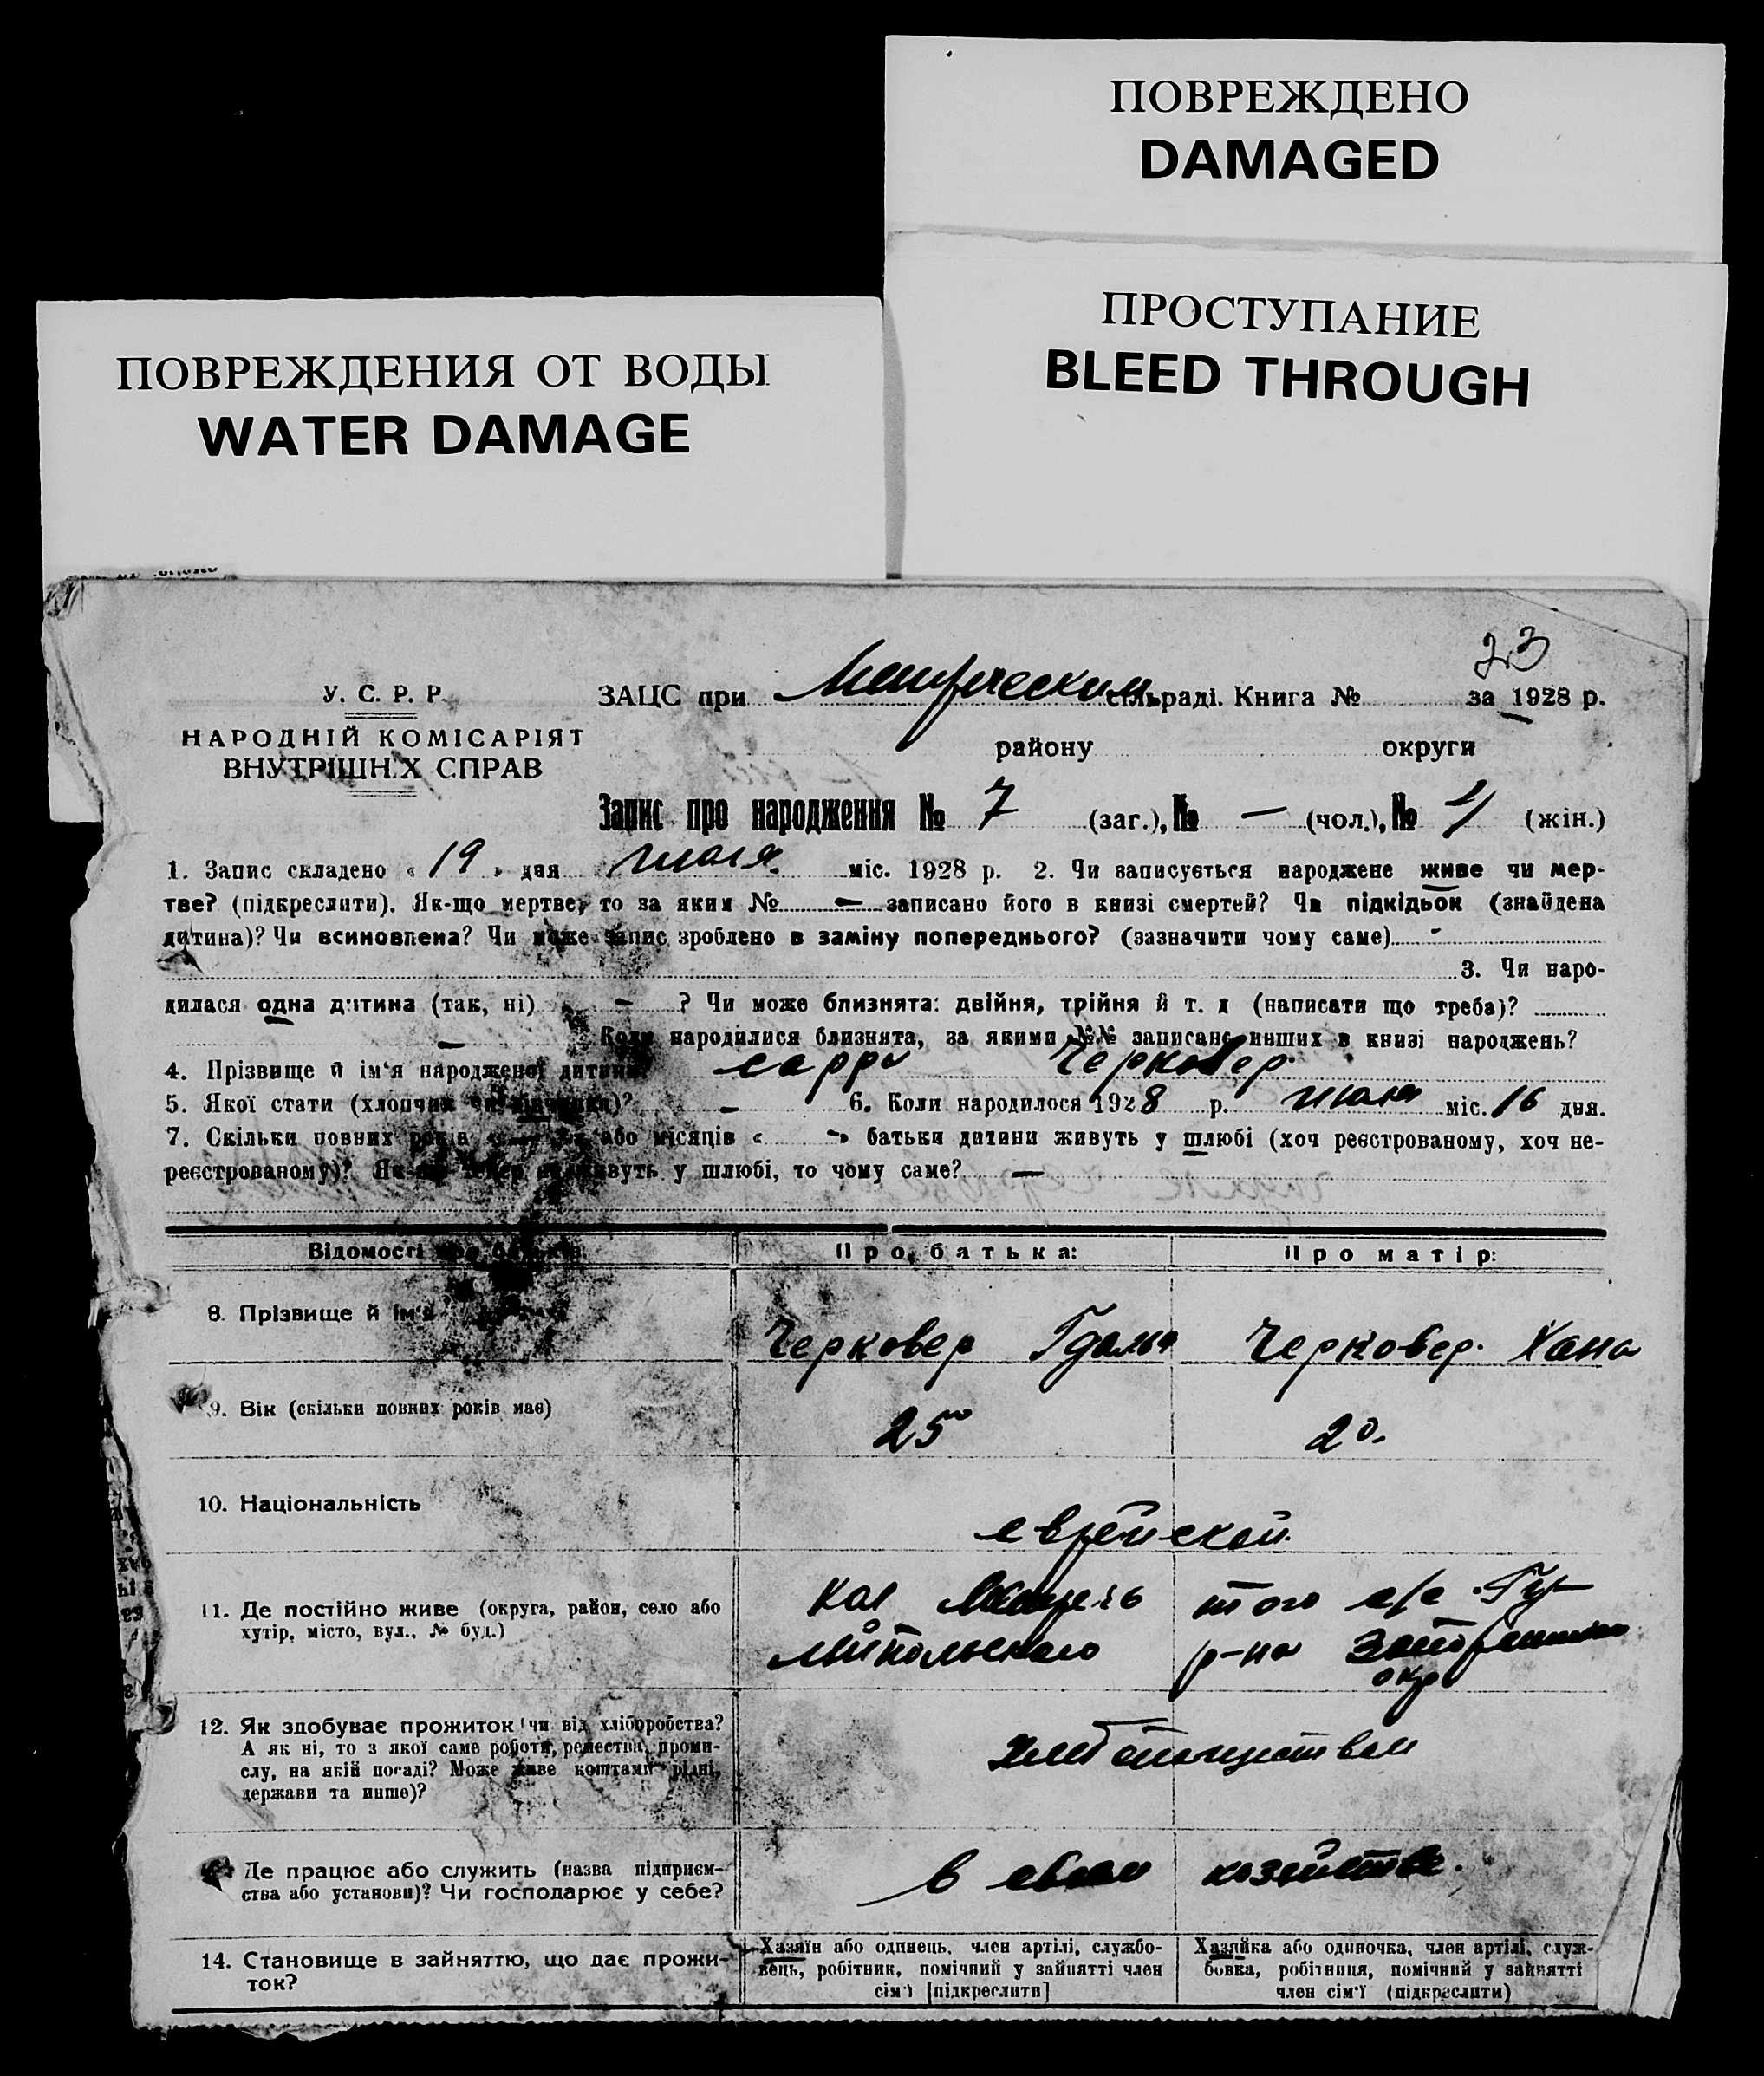 ПОВРЕЖДЕНО
DAMAGED
ПРОСТУПАНИЕ
BLEED THROUGH
ПОВРЕЖДЕНИЯ ОТ ВОДЫ
WATER DAMAGE
23
У. С. Р. Р.
НАРОДНІЙ КОМІСАРІЯТ
ВНУТРІШН.Х СПРАВ
ЗАЦС при сільраді. Книга № за 1928 р.
району округи
Запис про народження № 7 (заг.), № — (чол.), № 4 (жін.)
1. Запис складено « 19 » дня міс. 1928 р. 2. Чи записується народжене живе чи мер-
тве? (підкреслити). Як-що мертве, то за яким № — записано його в книзі смертей? Чи підкідьок (знайдена
дитина)? Чи всиновлена? Чи може запис зроблено в заміну попереднього? (зазначити чому саме) -
3. Чи наро-
дилася одна дитина (так, ні) — ? Чи може близнята: двійня, трійня й т. д (написати що треба)?
— Коли народилися близнята, за якими №№ записано инших в книзі народжень?
4. Прізвище й ім'я народженої дитини? сарра Черковер.
5. Якої стати (хлопчик чи )? — 6. Коли народилося 1928 р. міс. 16 дня.
7. Скільки повних років або місяців « -» батьки дитини живуть у шлюбі (хоч реєстрованому, хоч не-
реєстрованому)? живуть у шлюбі, то чому саме? —
Відомості про батьків Про батька: Про матір:
8. Прізвище й ім'я Черковер Гдаля Черковер. Хана
9. Вік (скільки повних років має) 25 20.
10. Національність еврейской
11. Де постійно живе (округа, район, село або
хутір, місто, вул., № буд.)
кол того с/с
р-на окр
12. Як здобуває прожиток чи від хліборобства?
А як ні, то з якої саме роботи, ремества, проми-
слу, на якій посаді? Може живе коштами рідні,
держави та инше)?
хлебопашеством
Де працює або служить (назва підприєм-
ства або установи)? Чи господарює у себе?
в своем хозяйстве.
14. Становище в зайняттю, що дає прожи-
ток?
Хазяїн або одинець, член артілі, службо-
вець, робітник, помічний у зайнятті член
сім'ї [підкреслити]
Хазяйка або одиночка, член артілі, служ-
бовка, робітниця, помічний у зайнятті
член сім'ї (підкреслити)